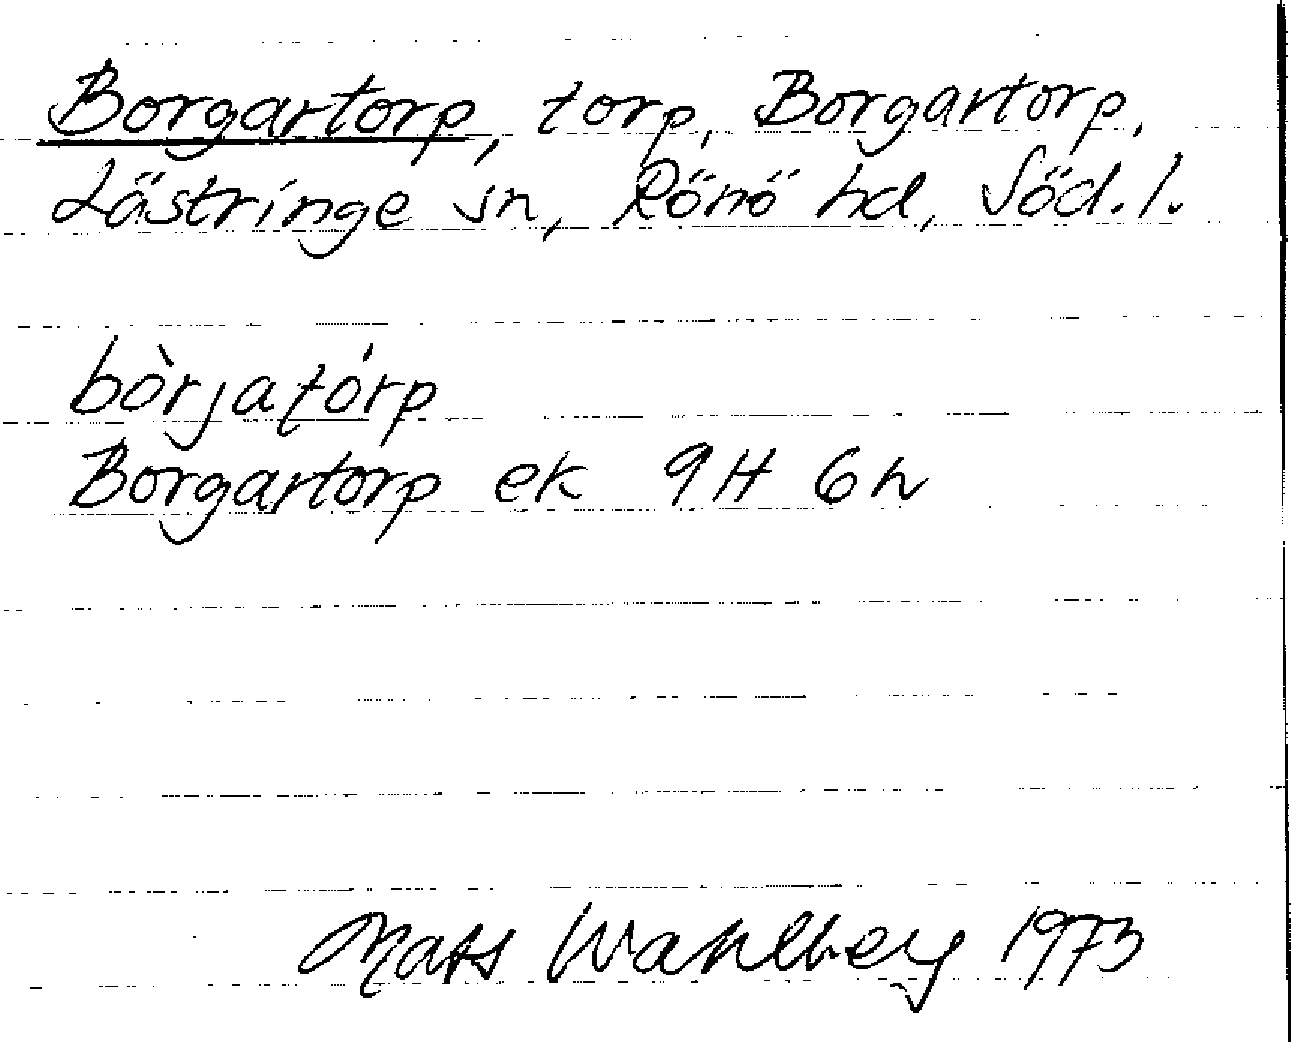 Borgartorp, torp, Borgartorp,
Lästringe sn, Rönö hd, Söd. l.
bòrjatórp
Borgartorp ek 9H 6h
Mats Wahlberg 1973